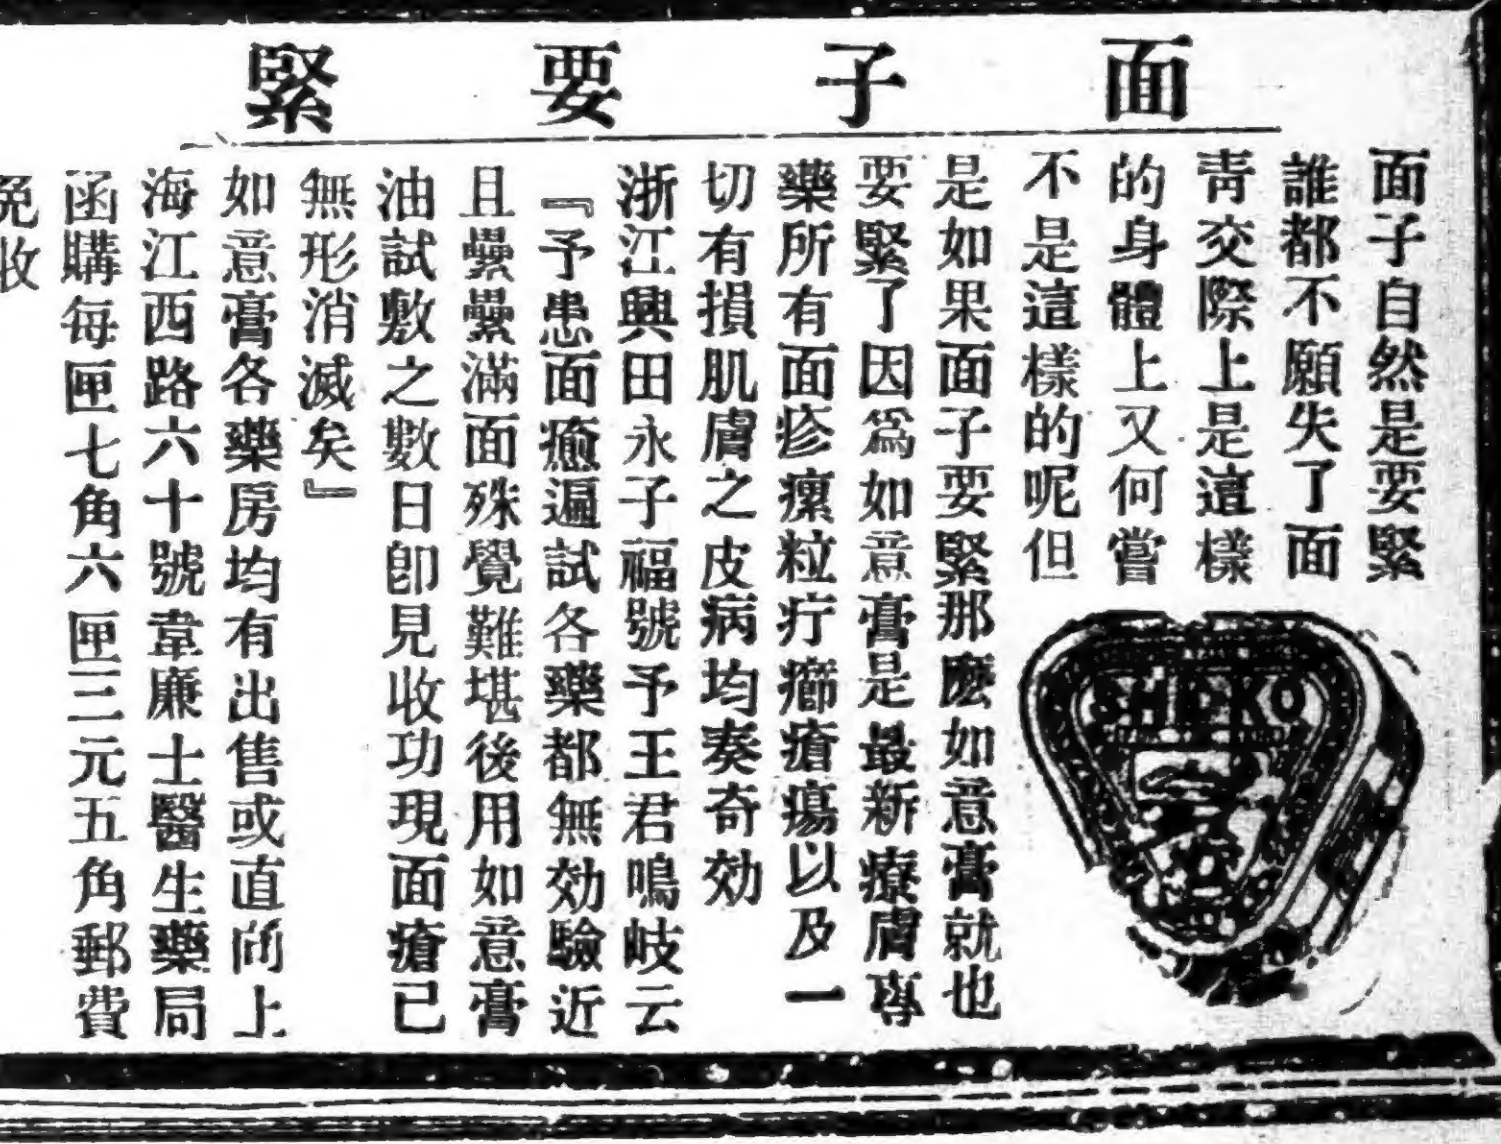 面子要緊
面子自然是要緊
誰都不願失了面
靑交際上是這樣
的身體上又何嘗
不是這樣的呢但
是如果面子要緊那麽如意膏就也
要緊了因爲如意膏是最新療膚專
藥所有面疹瘰粒疔癤瘡瘍以及一
切有損肌膚之皮病均奏奇効
浙江興田永子福號予王君鳴岐云
『予患面癒遍試各藥都無効驗近
且纍纍滿面殊覺難堪後用如意膏
油試敷之數日卽見收功現面瘡已
無形消滅矣』
如意膏各藥房均有出售或直向上
海江西路六十號韋廉士醫生藥局
函購每匣七角六匣三元五角郵費
免收